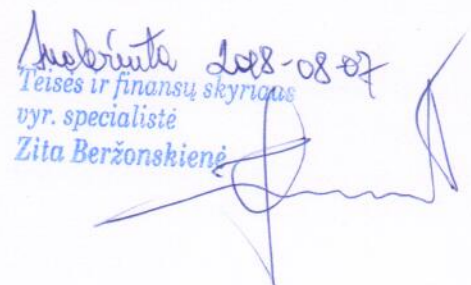 Suderinta 2018-08-07
Teisės ir finansų skyriaus
vyr. specialistė
Zita Beržonskienė